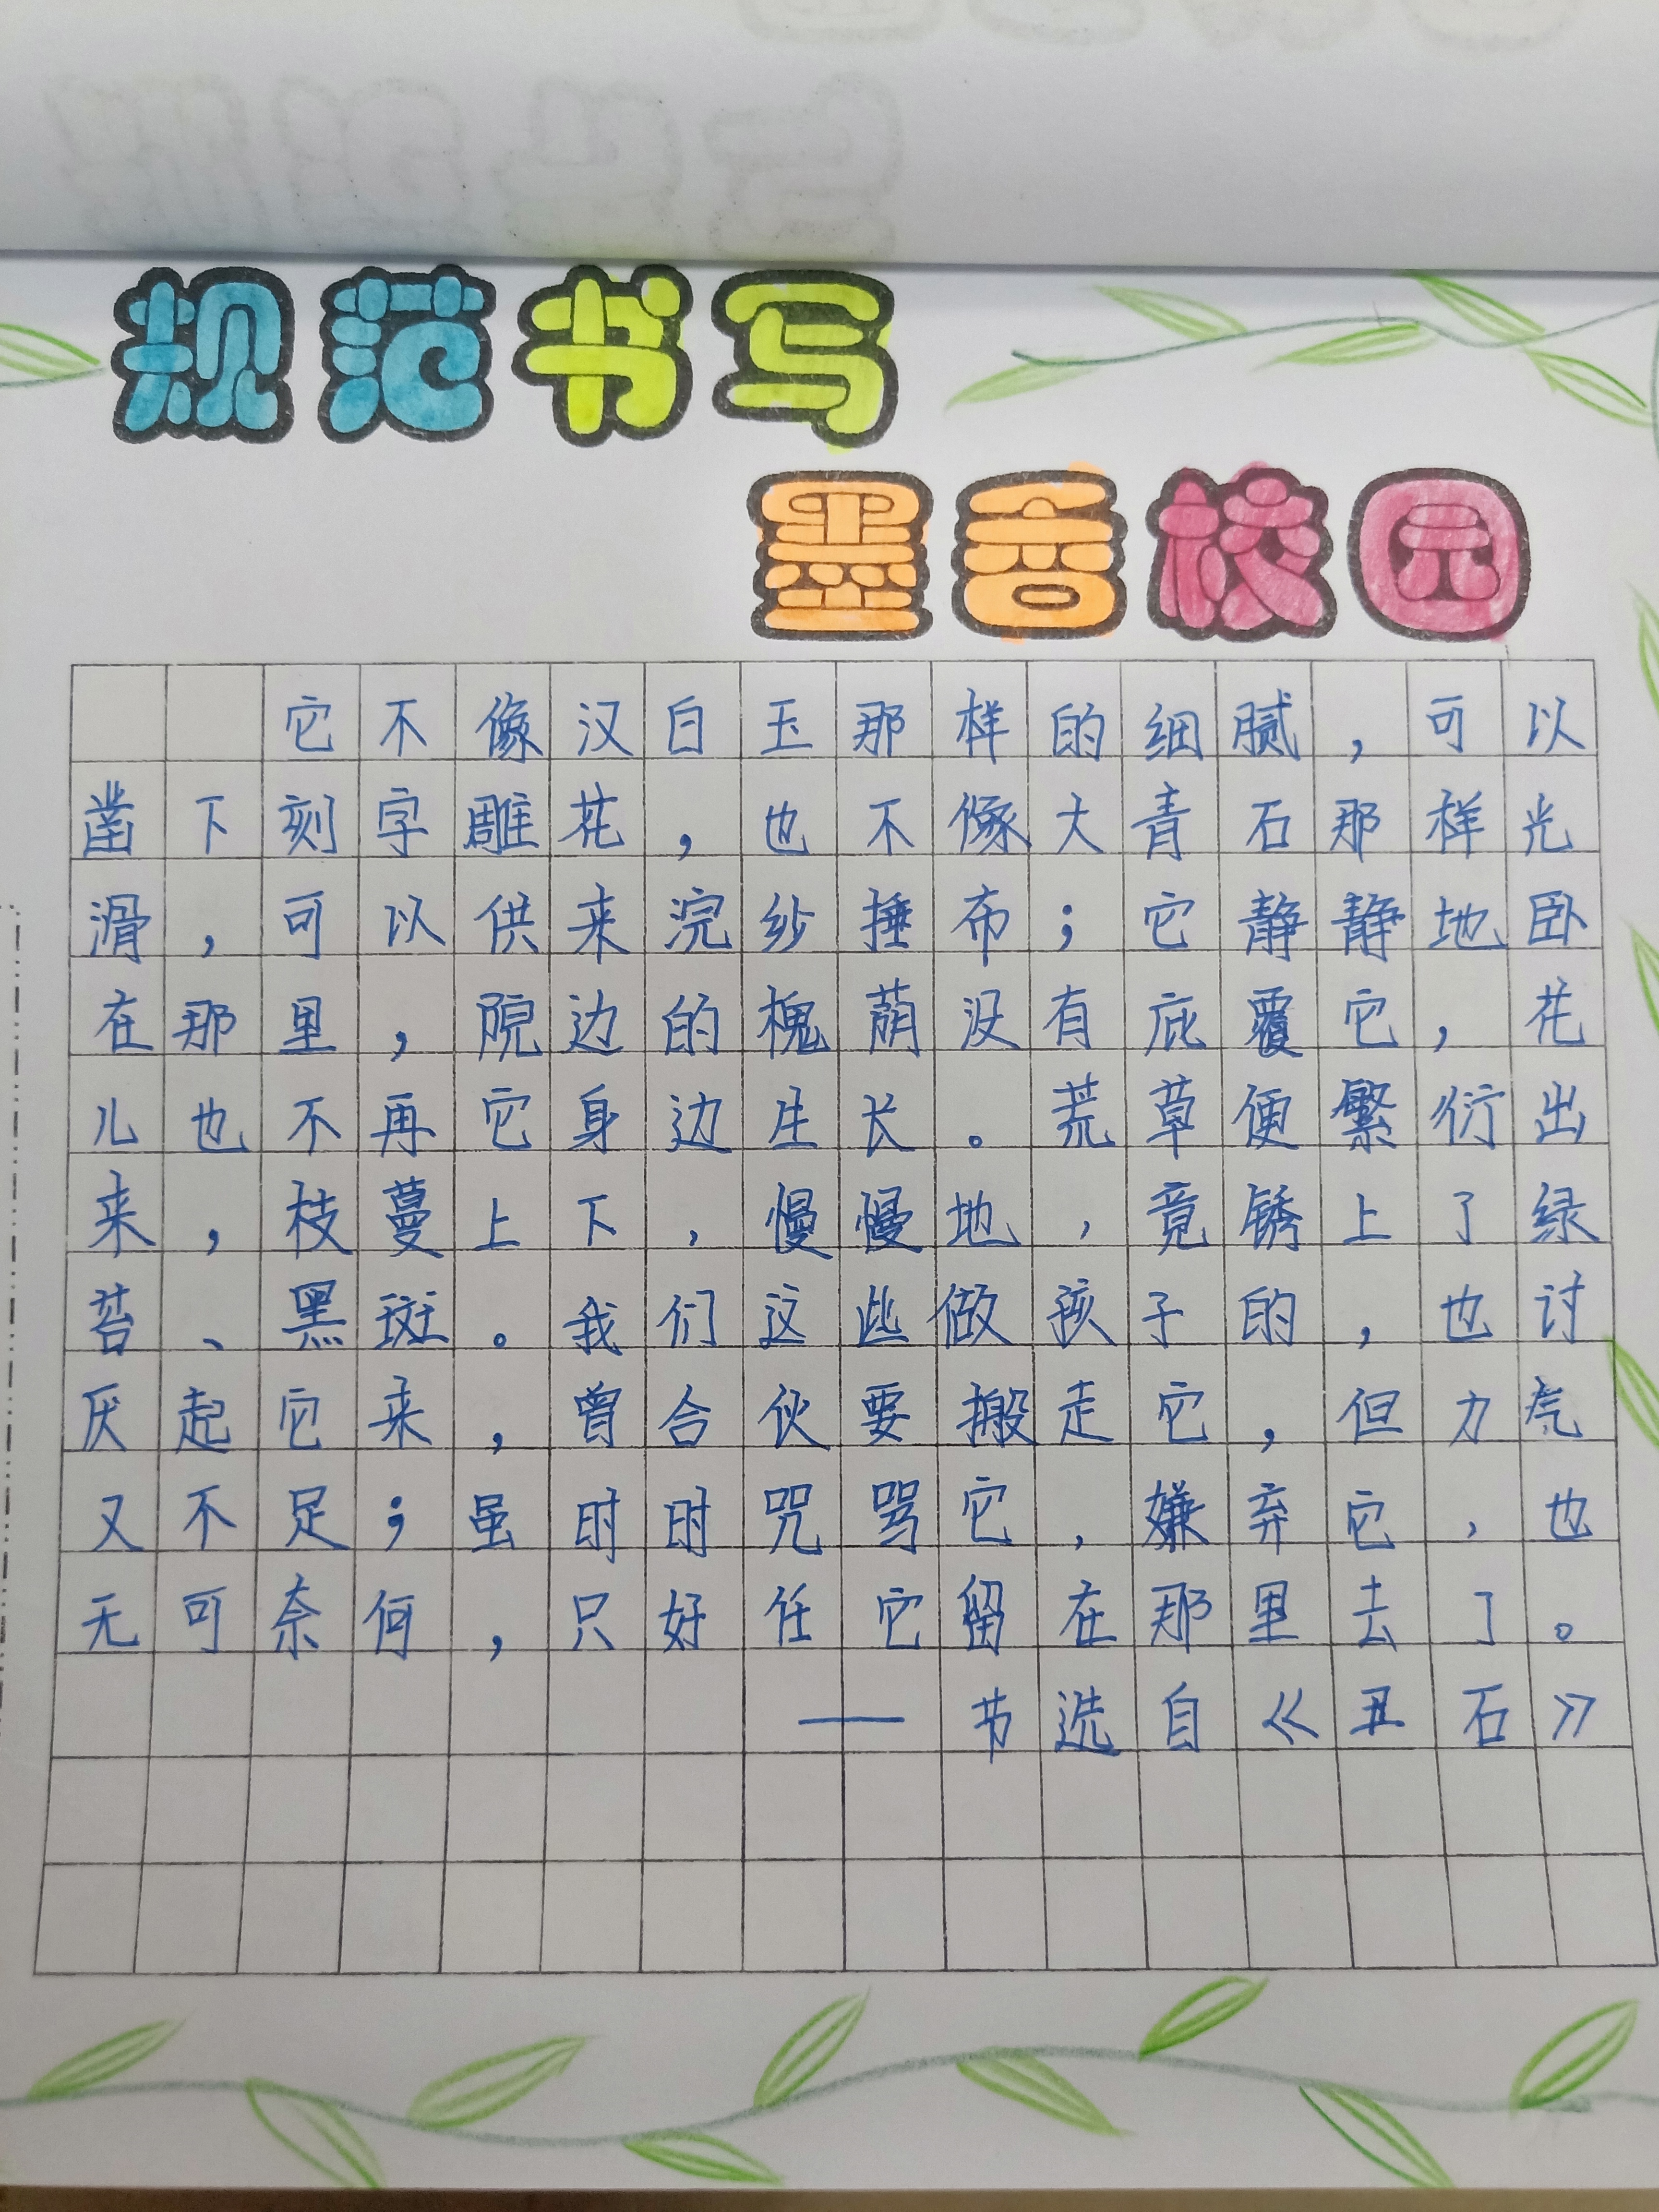 规范书写
墨香校园
它不像汉白玉那样的细腻，可以
凿下刻字雕花，也不像大青石那样光
滑，可以供来浣纱捶布；它静静地卧
在那里，院边的槐荫没有庇覆它，花
儿也不再它身边生长。荒草便繁衍出
来，枝蔓上下，慢慢地，竟锈上了绿
苔、黑斑。我们这些做孩子的，也讨
厌起它来，曾合伙要搬走它，但力气
又不足；虽时时咒骂它，嫌弃它，也
无可奈何，只好任它留在那里去了。
——节选自《丑石》